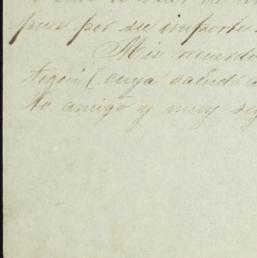 pues por su importe
Mis recuerdo
tegon (cuya salud
to amigo y muy seg